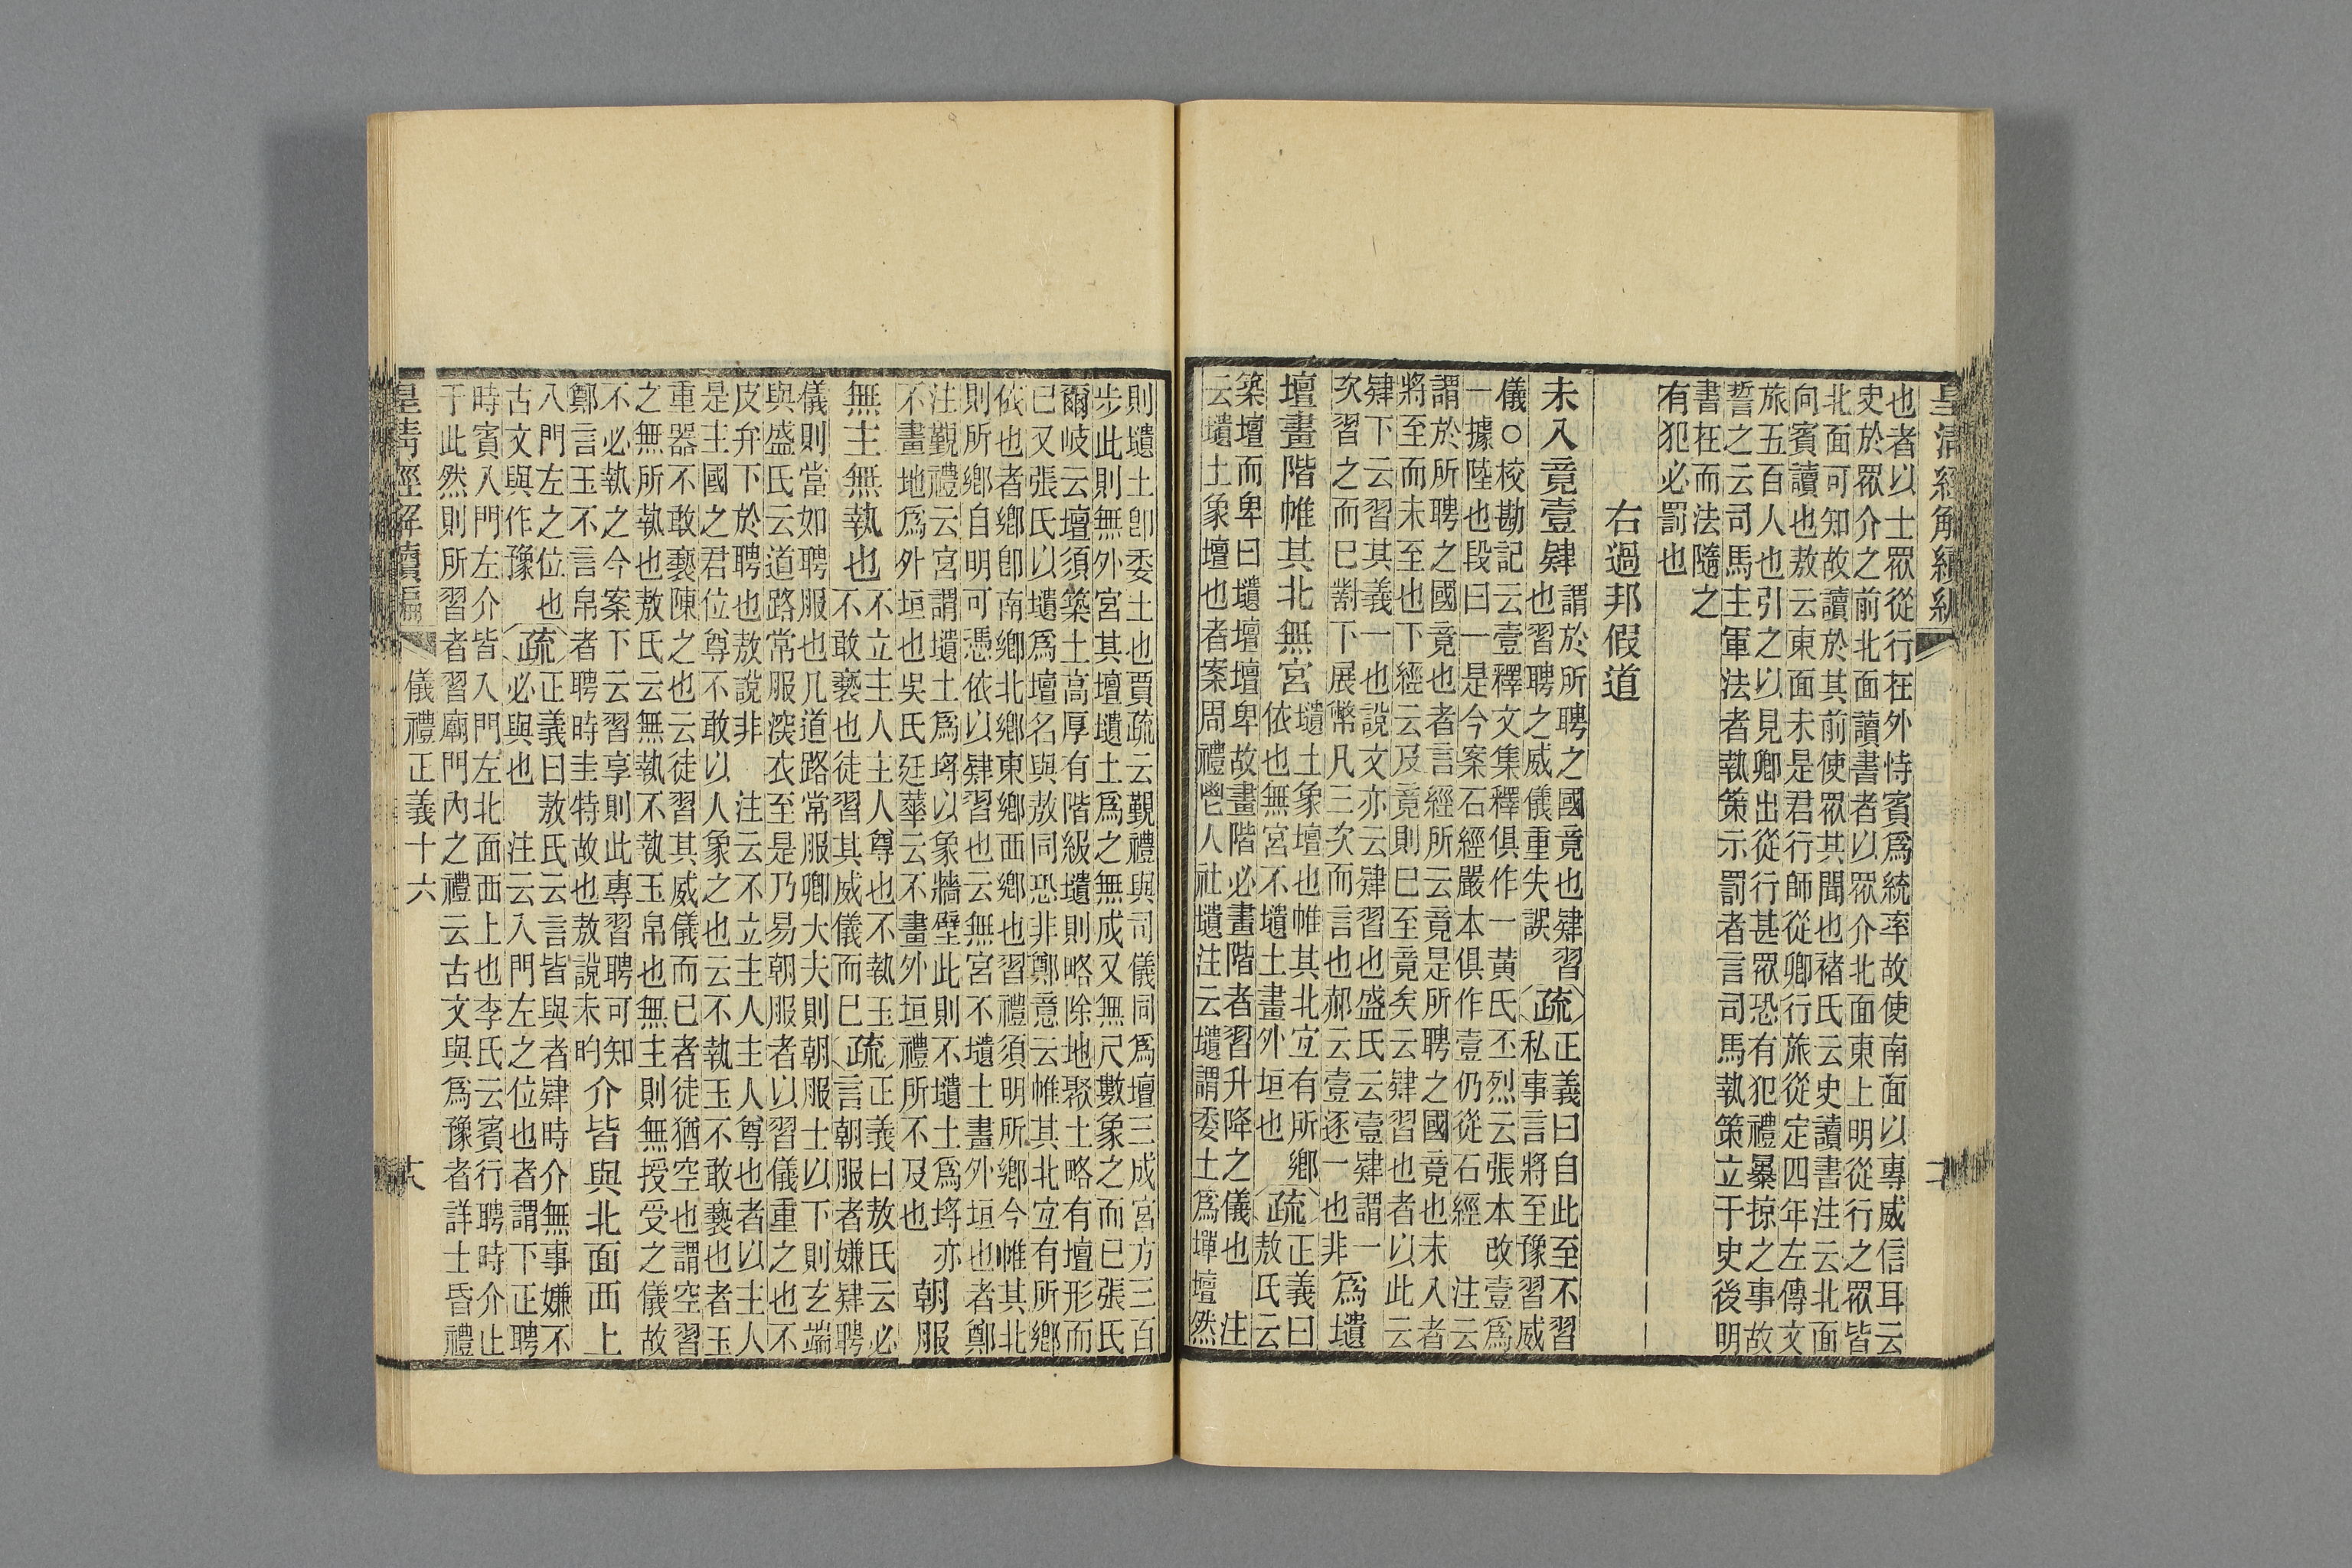 皇清經解續編
也者以士眾從行在外恃賓爲統率故使南面以專威信耳云
史於眾介之前北面讀書者以眾介北面東上明從行之眾皆
北面可知故讀於其前使眾其聞也褚氏云史讀書注云北面
向賓讀也敖云東面未是君行師從卿行旅從定四年左傳文
旅五百人也引之以見卿出從行甚眾恐有犯禮暴掠之事故
誓之云司馬主軍法者執策示罰者言司馬執策立于史後明
書在而法隨之
有犯必罰也
右過邦假道
未入竟壹肄
謂於所聘之國竟也肄習
也習聘之威儀重失誤
疏
正義曰自此至不習
私事言將至豫習威
儀○校勘記云壹釋文集釋俱作一黃氏丕烈云張本改壹爲
一據陸也段曰一是今案石經嚴本俱作壹仍從石經　注云
謂於所聘之國竟也者言經所云竟是所聘之國竟也未入者
將至而未至也下經云及竟則巳至竟矣云肄習也者以此云
肄下云習其義一也說文亦云肄習也盛氏云壹肄謂一
次習之而巳劄下展幣凡三次而言也郝云壹逐一也非
爲壝
壇畫階帷其北無宮
壝土象壇也帷其北宜有所鄉
依也無宮不壝土畫外垣也
疏
正義曰
敖氏云
築壇而卑曰壝壇壇卑故畫階必畫階者習升降之儀也　注
云壝土象壇也者案周禮鬯人社壝注云壝謂委土爲墠壇然
則壝土卽委土也賈疏云覲禮與司儀同爲壇三成宮方三百
步此則無外宮其壇壝土爲之無成又無尺數象之而已張氏
爾岐云壇須築土高厚有階級壝則略除地聚土略有壇形而
已又張氏以壝爲壇名與敖同恐非鄭意云帷其北宜有所鄉
依也者鄉卽南鄉北鄉東鄉西鄉也習禮須明所鄉今帷其北
則所鄉自明可憑依以肄習也云無宮不壝土畫外垣也者鄭
注覲禮云宮謂壝土爲埒以象牆壁此則不壝土爲埒亦
不畫地爲外垣也吳氏廷華云不畫外垣禮所不及也
朝服
無主無執也
不立主人主人尊也不執玉
不敢褻也徒習其威儀而巳
疏
正義曰敖氏云必
言朝服者嫌肄聘
儀則當如聘服也几道路常服卿大夫則朝服士以下則玄端
與盛氏云道路常服深衣至是乃易朝服者以習儀重之也不
皮弁下於聘也敖說非　注云不立主人主人尊也者以主人
是主國之君位尊不敢以人象之也云不執玉不敢褻也者玉
重器不敢褻陳之也云徒習其威儀而已者徒猶空也謂空習
之無所執也敖氏云無執不執玉帛也無主則無授受之儀故
不必執之今案下云習享則此專習聘可知
鄭言玉不言帛者聘時圭特故也敖說未昀
介皆與北面西上
入門左之位也
古文與作豫
疏
正義曰敖氏云言皆與者肄時介無事嫌不
必與也　注云入門左之位也者謂下正聘
時賓入門左介皆入門左北面西上也李氏云賓行聘時介止
于此然則所習者習廟門內之禮云古文與爲豫者詳士昏禮
皇清經解續編
儀禮正義十六